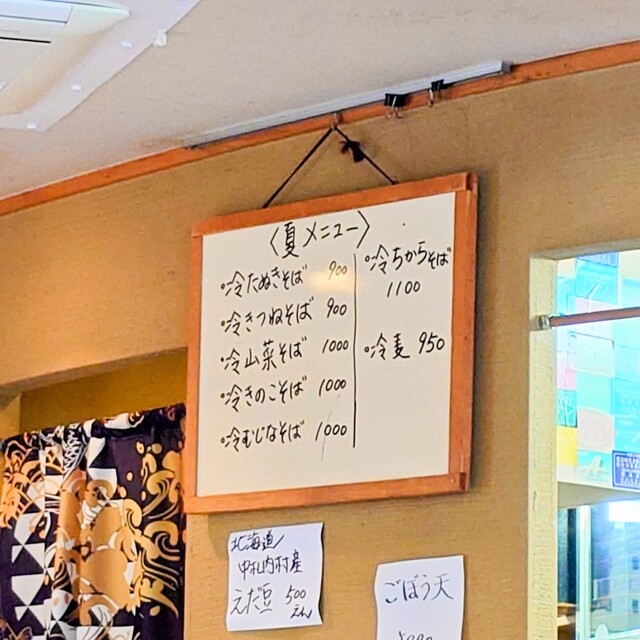 〈夏メニュー〉
・冷たぬきそば 900
・冷きつねそば 900
・冷山菜そば 1000
・冷きのこそば 1000
・冷むじなそば 1000
・冷ちからそば
1100
・冷麦 950
北海道
中札内村産
えだ豆 500
えん
ごぼう天